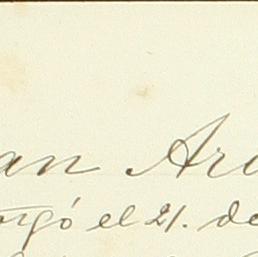 an Ar
orgó el 21. de